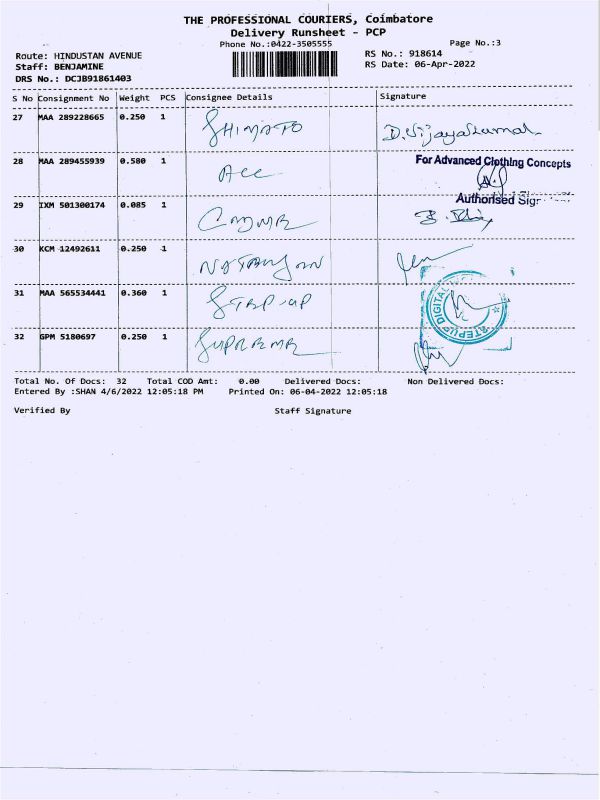 THE PROFESSIONAL COURIERS, Coimbatore
Delivery Runsheet - PCP
Phone No.:0422-3505555
Page No.:3
Route: HINDUSTAN AVENUE
Staff: BENJAMINE
DRS No.: DCJB91861403
RS No.: 918614
RS Date: 06-Apr-2022
S No Consignment No Weight PCS Consignee Details Signature
27 MAA 289228665 0.250 1 SHIMATO D.Vijayakumar
28 MAA 289455939 0.580 1 ACC
For Advanced Clothing Concepts
Authorised Sign
29 IXM 501300174 0.085 1
30 KCM 12492611 0.250 1
31 MAA 565534441 0.360 1 STEP-UP
STEPUP DIGITAL
32 GPM 5180697 0.250 1 SUPREME
Total No. Of Docs: 32 Total COD Amt: 0.00 Delivered Docs: Non Delivered Docs:
Entered By :SHAN 4/6/2022 12:05:18 PM Printed On: 06-04-2022 12:05:18
Verified By Staff Signature